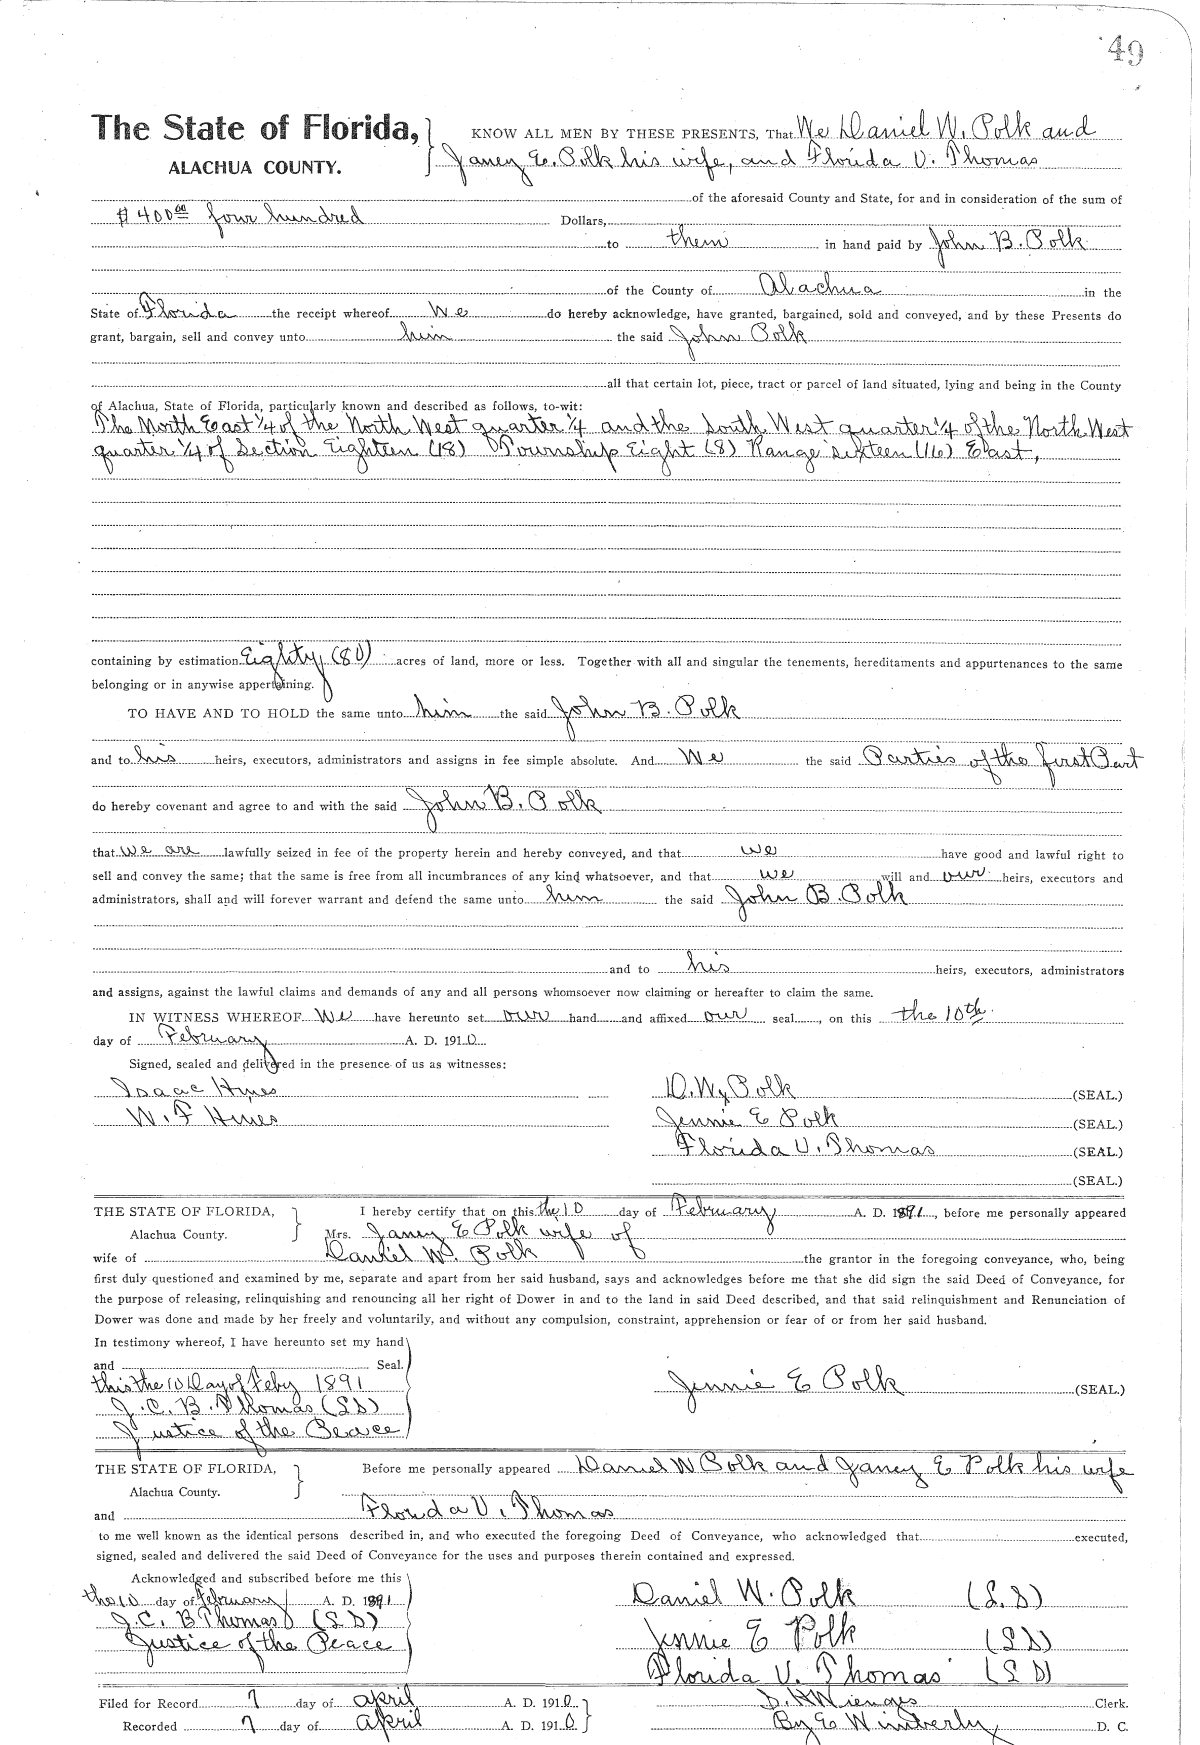 49
The State of Florida,
ALACHUA COUNTY.
KNOW ALL MEN BY THESE PRESENTS, That We Daniel W. Polk and
Janey E. Polk his wife, and Florida V. Thomas
of the aforesaid County and State, for and in consideration of the sum of
$400.00 four hundred Dollars,
to them in hand paid by John B. Polk
of the County of Alachua in the
State of Florida the receipt whereof We do hereby acknowledge, have granted, bargained, sold and conveyed, and by these Presents do
grant, bargain, sell and convey unto him the said John Polk
all that certain lot, piece, tract or parcel of land situated, lying and being in the County
of Alachua, State of Florida, particularly known and described as follows, to-wit:
The North East 1/4 of the North West quarter 1/4 and the South West quarter 1/4 of the North West
quarter 1/4 of Section Eighteen (18) Township Eight (8) Range sixteen (16) East,
containing by estimation Eighty (80) acres of land, more or less. Together with all and singular the tenements, hereditaments and appurtenances to the same
belonging or in anywise appertaining.
TO HAVE AND TO HOLD the same unto him the said John B. Polk
and to his heirs, executors, administrators and assigns in fee simple absolute. And We the said Parties of the first Part
do hereby covenant and agree to and with the said John B. Polk
that we are lawfully seized in fee of the property herein and hereby conveyed, and that we have good and lawful right to
sell and convey the same; that the same is free from all incumbrances of any kind whatsoever, and that we will and our heirs, executors and
administrators, shall and will forever warrant and defend the same unto him the said John B. Polk
and to his heirs, executors, administrators
and assigns, against the lawful claims and demands of any and all persons whomsoever now claiming or hereafter to claim the same.
IN WITNESS WHEREOF We have hereunto set our hand and affixed our seal, on this the 10th
day of February A. D. 1910
Signed, sealed and delivered in the presence of us as witnesses:
Isaac Hines D. W. Polk (SEAL.)
W. F Hines Jennie E Polk (SEAL.)
Florida V. Thomas (SEAL.)
(SEAL.)
THE STATE OF FLORIDA, I hereby certify that on this the 10 day of February A. D. 1891, before me personally appeared
Alachua County. Mrs. Janey E Polk wife of
wife of Daniel W. Polk the grantor in the foregoing conveyance, who, being
first duly questioned and examined by me, separate and apart from her said husband, says and acknowledges before me that she did sign the said Deed of Conveyance, for
the purpose of releasing, relinquishing and renouncing all her right of Dower in and to the land in said Deed described, and that said relinquishment and Renunciation of
Dower was done and made by her freely and voluntarily, and without any compulsion, constraint, apprehension or fear of or from her said husband.
In testimony whereof, I have hereunto set my hand
and Seal.
this the 10 Day of Feby 1891 Jennie E Polk (SEAL.)
J. C. B. Thomas (SD)
Justice of the Peace
THE STATE OF FLORIDA, Before me personally appeared Daniel W Polk and Janey E Polk his wife
Alachua County.
and Florida V. Thomas
to me well known as the identical persons described in, and who executed the foregoing Deed of Conveyance, who acknowledged that executed,
signed, sealed and delivered the said Deed of Conveyance for the uses and purposes therein contained and expressed.
Acknowledged and subscribed before me this
the 10 day of February A. D. 1891 Daniel W. Polk (S.D)
J. C. B Thomas (SD) Jennie E Polk (SD)
Justice of the Peace Florida V. Thomas (SD)
Filed for Record 7 day of april A. D. 1910 Clerk.
Recorded 7 day of april A. D. 1910 By E Wimberly D. C.